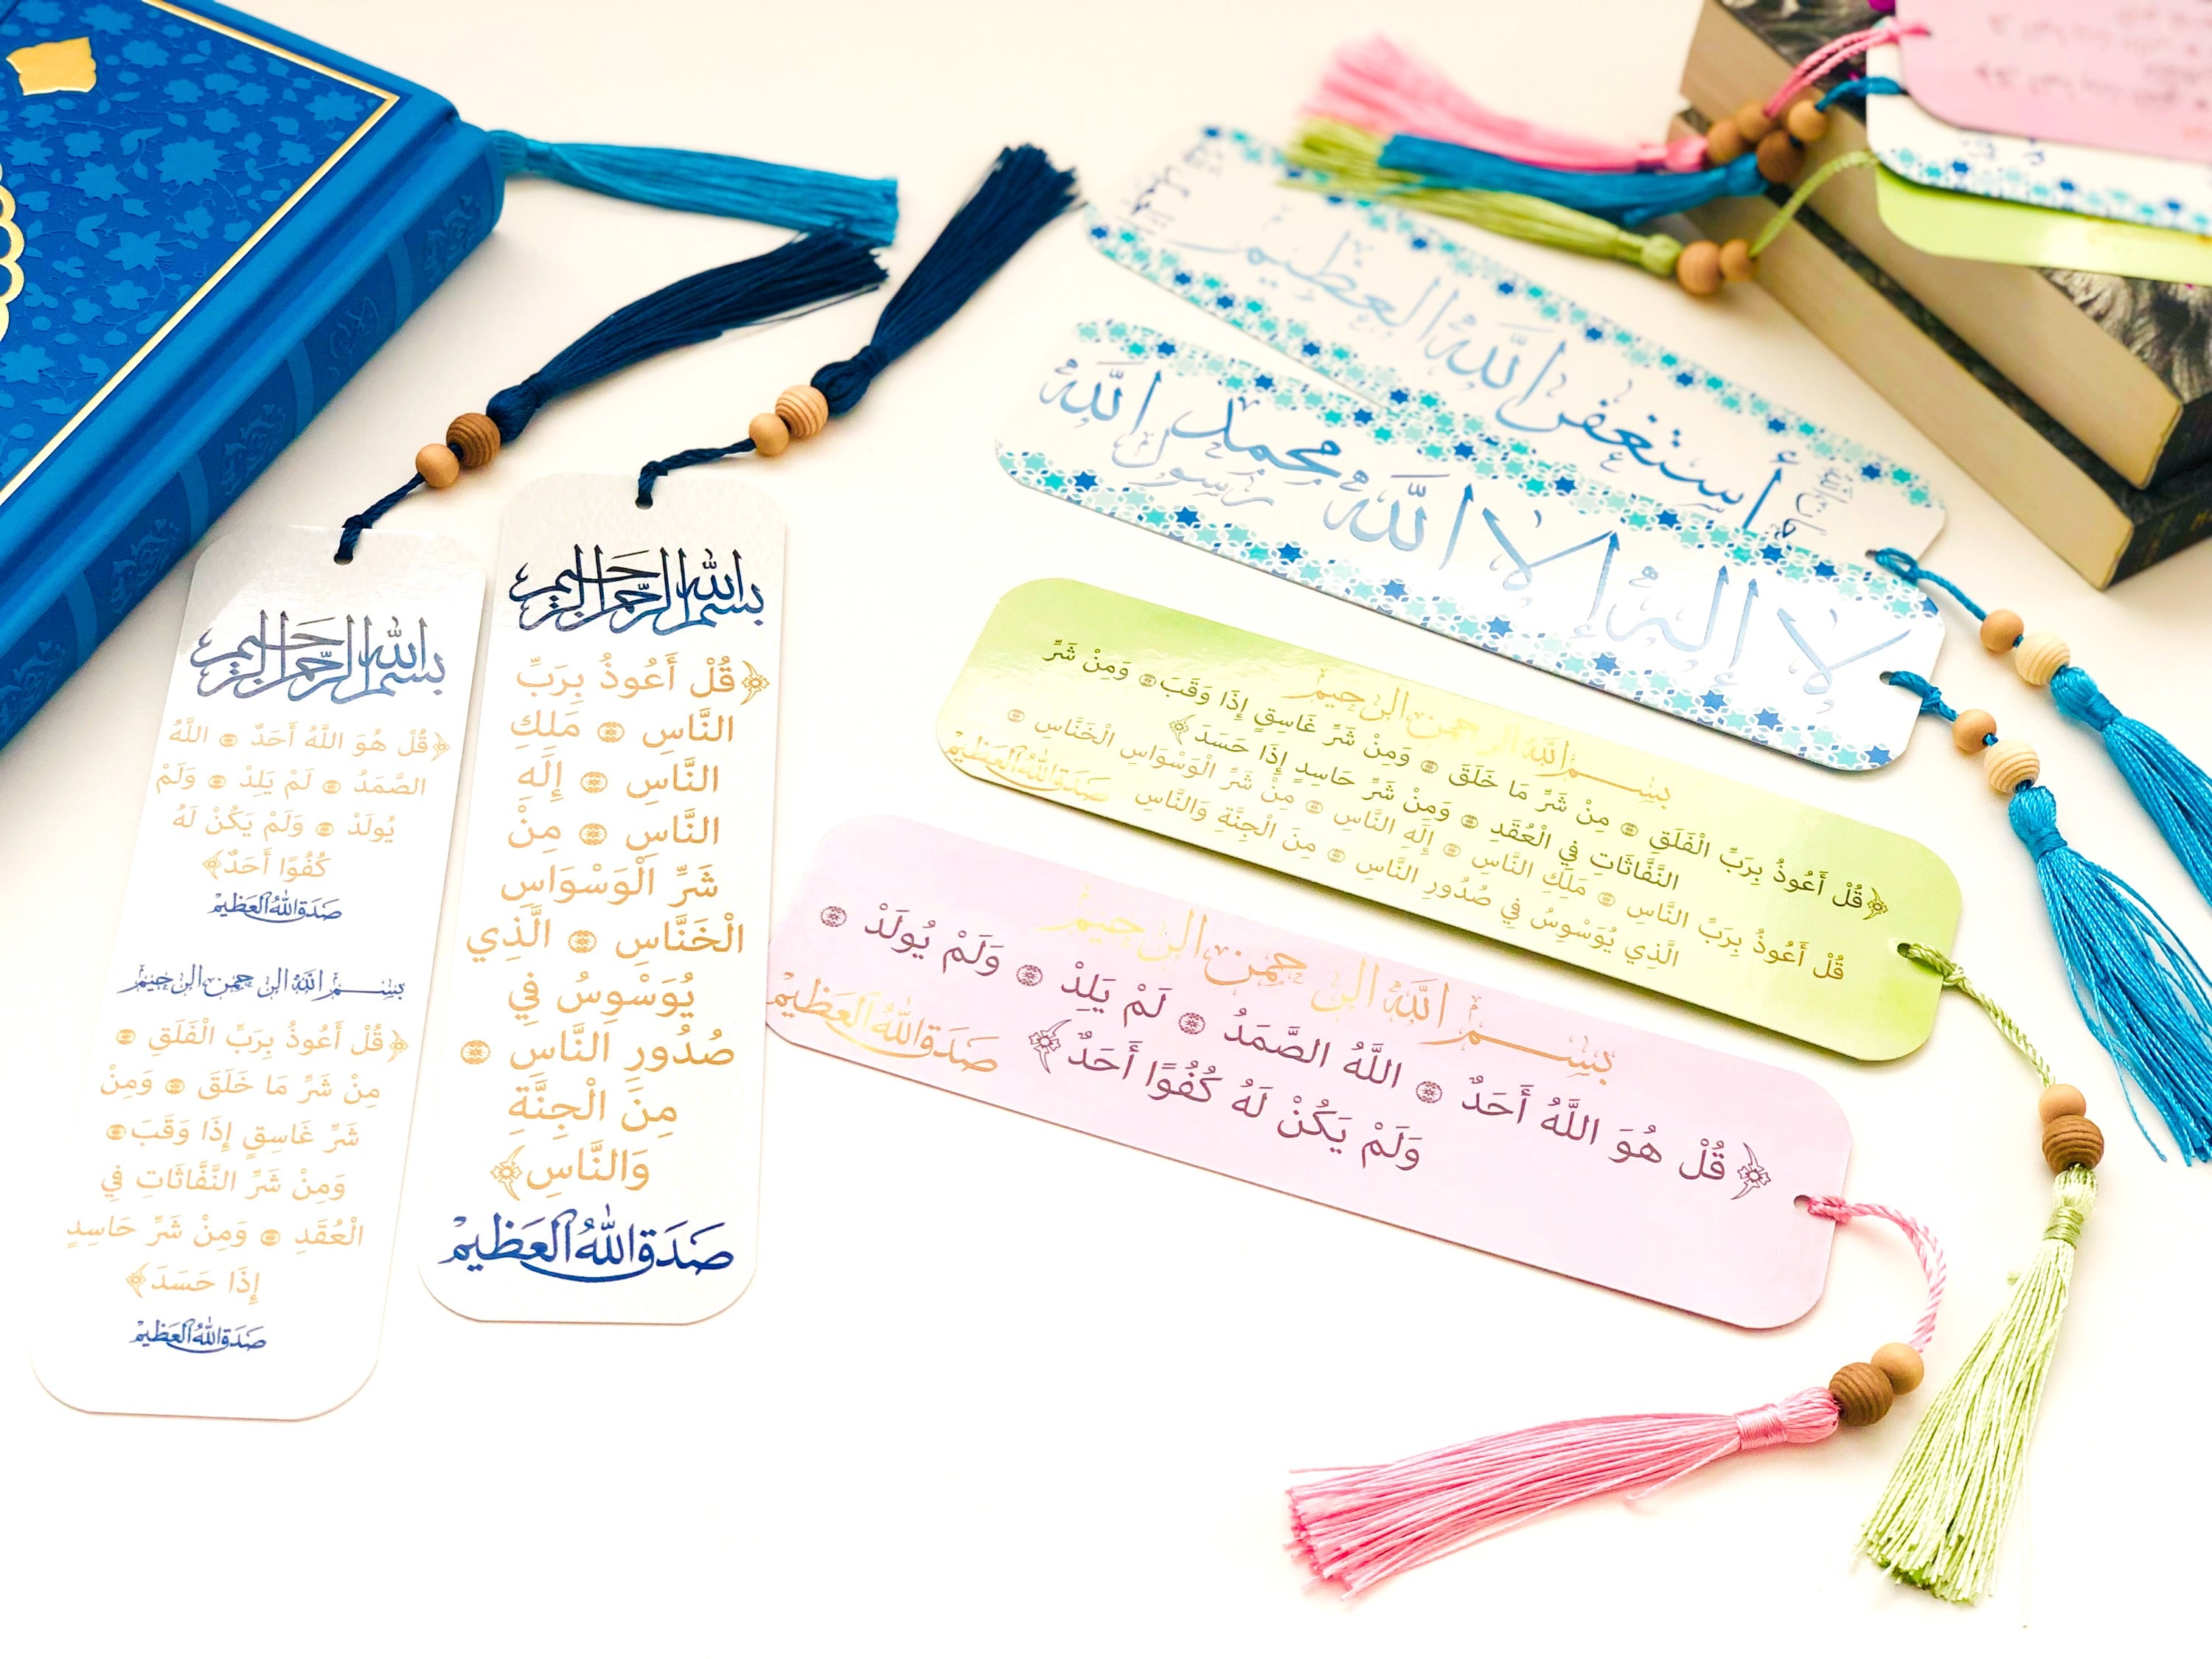 بسم الله الرحمن الرحيم
﴿قُلْ هُوَ اللَّهُ أَحَدٌ ۞ اللَّهُ
الصَّمَدُ ۞ لَمْ يَلِدْ ۞ وَلَمْ
يُولَدْ ۞ وَلَمْ يَكُنْ لَهُ
كُفُوًا أَحَدٌ﴾
صَدَقَ اللهُ العَظيمْ
بسم الله الرحمن الرحيم
﴿قُلْ أَعُوذُ بِرَبِّ الْفَلَقِ ۞
مِنْ شَرِّ مَا خَلَقَ ۞ وَمِنْ
شَرِّ غَاسِقٍ إِذَا وَقَبَ ۞
وَمِنْ شَرِّ النَّفَّاثَاتِ فِي
الْعُقَدِ ۞ وَمِنْ شَرِّ حَاسِدٍ
إِذَا حَسَدَ﴾
صَدَقَ اللهُ العَظيمْ
بسم الله الرحمن الرحيم
﴿قُلْ أَعُوذُ بِرَبِّ
النَّاسِ ۞ مَلِكِ
النَّاسِ ۞ إِلَهِ
النَّاسِ ۞ مِنْ
شَرِّ الْوَسْوَاسِ
الْخَنَّاسِ ۞ الَّذِي
يُوَسْوِسُ فِي
صُدُورِ النَّاسِ ۞
مِنَ الْجِنَّةِ
وَالنَّاسِ﴾
صَدَقَ اللهُ العَظيمْ
أستغفر الله العظيم
لا إله إلا الله محمد
رسول الله
بسم الله الرحمن الرحيم
﴿قُلْ أَعُوذُ بِرَبِّ الْفَلَقِ ۞ مِنْ شَرِّ مَا خَلَقَ ۞ وَمِنْ شَرِّ غَاسِقٍ إِذَا وَقَبَ ۞ وَمِنْ شَرِّ
النَّفَّاثَاتِ فِي الْعُقَدِ ۞ وَمِنْ شَرِّ حَاسِدٍ إِذَا حَسَدَ﴾
قُلْ أَعُوذُ بِرَبِّ النَّاسِ ۞ مَلِكِ النَّاسِ ۞ إِلَهِ النَّاسِ ۞ مِنْ شَرِّ الْوَسْوَاسِ الْخَنَّاسِ ۞
الَّذِي يُوَسْوِسُ فِي صُدُورِ النَّاسِ ۞ مِنَ الْجِنَّةِ وَالنَّاسِ
صَدَقَ اللهُ العَظيمْ
بسم الله الرحمن الرحيم
﴿قُلْ هُوَ اللَّهُ أَحَدٌ ۞ اللَّهُ الصَّمَدُ ۞ لَمْ يَلِدْ ۞ وَلَمْ يُولَدْ ۞
وَلَمْ يَكُنْ لَهُ كُفُوًا أَحَدٌ﴾
صَدَقَ اللهُ العَظيمْ